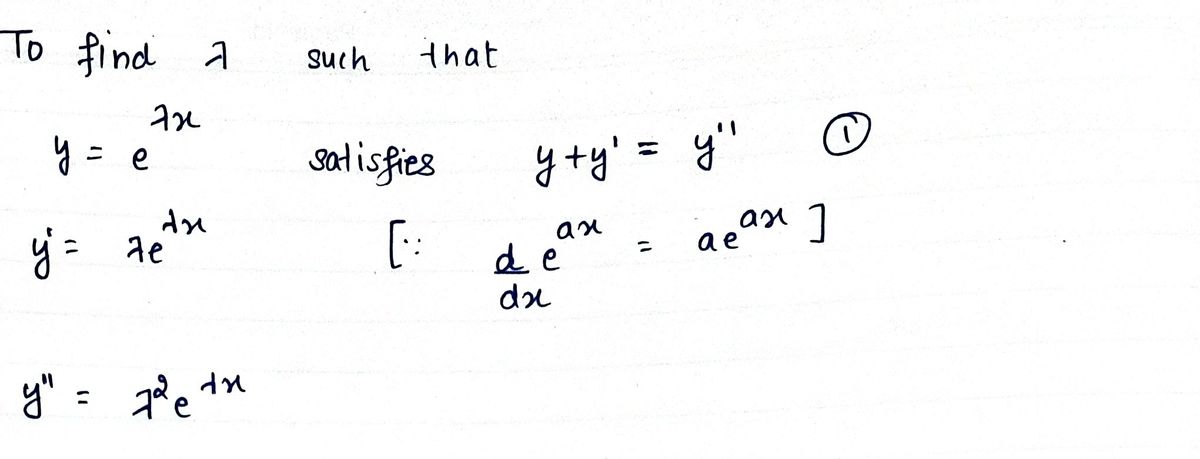 To find λ such that
y = e^λx satisfies y + y' = y'' ①
y' = λe^λx [∵ d/dx e^ax = ae^ax ]
y'' = λ²e^λx